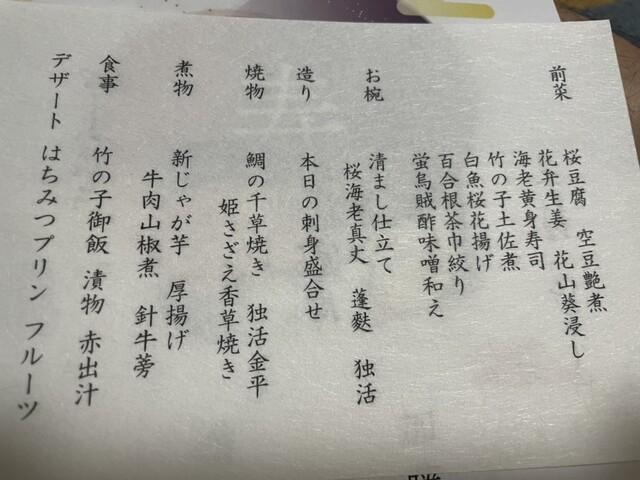 前菜
桜豆腐 空豆艶煮
花弁生姜 花山葵浸し
海老黄身寿司
竹の子土佐煮
白魚桜花揚げ
百合根茶巾絞り
蛍烏賊酢味噌和え
お椀
清まし仕立て
桜海老真丈 蓬麩 独活
造り
本日の刺身盛合せ
焼物
鯛の千草焼き 独活金平
姫さざえ香草焼き
煮物
新じゃが芋 厚揚げ
牛肉山椒煮 針牛蒡
食事
竹の子御飯 漬物 赤出汁
デザート はちみつプリン フルーツ
寿